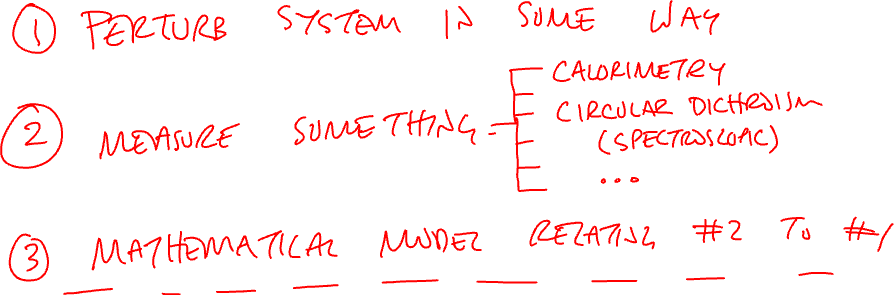 ① PERTURB SYSTEM IN SOME WAY
CALORIMETRY
② MEASURE SOMETHING CIRCULAR DICHROISM
(SPECTROSCOPIC)
...
③ MATHEMATICAL MODEL RELATING #2 TO #1